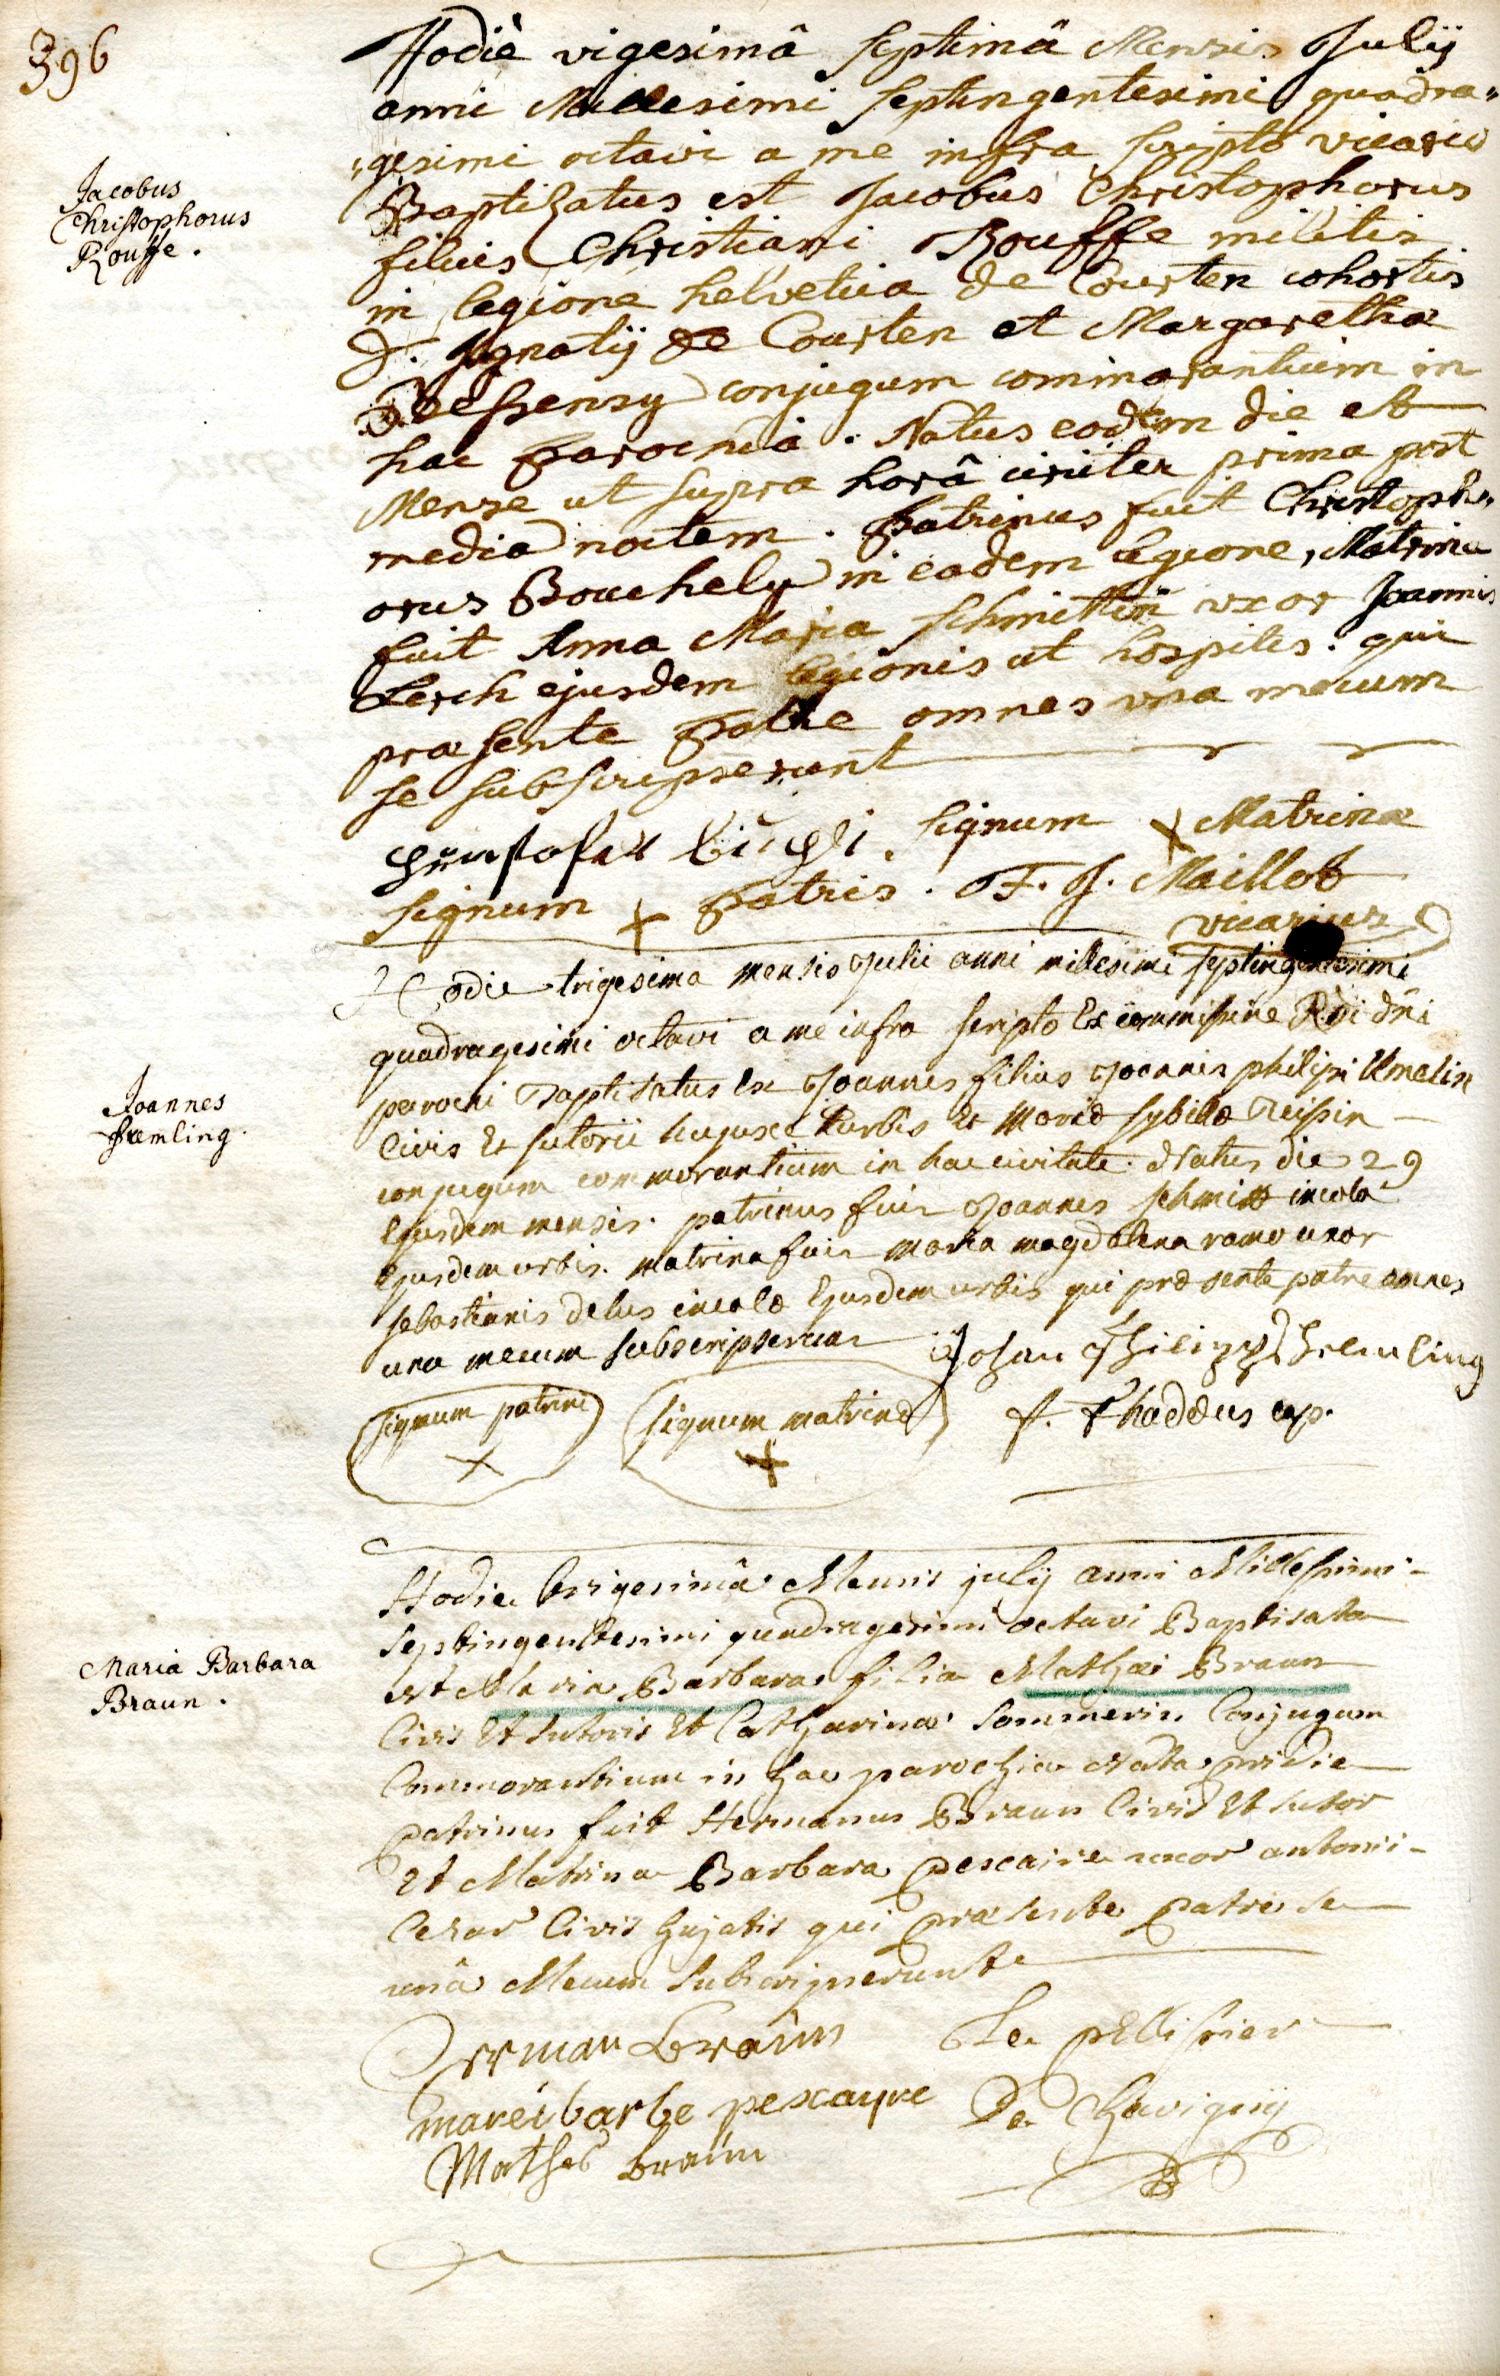 396
Hodiè vigesimâ septimâ Mensis Julij
anni Millesimi septingentesimi quadra=
=gesimi octavi a me infra scripto vicario
Baptizatus est Jacobus Christophorus
filius Christiani Rouffe militis
in legione helvetica de Courten cohortis
D. Ignatij de Courten et Margaretha
conjugum commorantium in
hac parochiâ. Natus eodem die et
Mense ut supra horâ circiter prima post
media noctem. patrinus fuit Christoph=
orus Bouchely in eadem legione, Matrina
fuit Anna Maria schmittin uxor Joannis
Lerch ejusdem legionis ut hospites. qui
præsente patre omnes una mecum
se subscripserunt
Jacobus
Christophorus
Rouffe.
signum x Matrinæ
signum x patris. F. J. Maillot
vicarius
Hodie trigesima mensis Julii anni millesimi septingentesimi
quadragesimi octavi a me infra scripto Ex commissione Rdi dni
parochi baptisatus Est Joannes filius Joannis philipi
Civis Et sutorii hujusce urbis Et Mariæ sybillæ Reisin
conjugum commorantium in hac civitate. Natus die 29
Ejusdem mensis. patrinus fuit Joannes schmitt incola
Ejusdem urbis. matrina fuit maria magdalena ramo uxor
sebastianis delus incolæ Ejusdem urbis qui præsente patre omnes
una mecum subscripserunt
Joannes
fremling.
Johan Philipp fremling
signum patrini signum matrinæ f. Thaddeus cap.
x x
Hodie trigesimâ Mensis julij anni Millesimi
septingentesimi quadragesimi octavi Baptisata
est Maria Barbara filia Mathæi Braun
Civis Et sutoris Et Catharina sommerin Conjugum
Commorantium in hac parochia Nata pridie
patrinus fuit Hermanus Braun Civis Et sutor
Et Matrina Barbara pescaire uxor antonii
Cesar Civis hujatis qui præsente patre se
unâ Mecum subscripserunt
Maria Barbara
Braun.
Herman braun Le pellissier
marei barbe pescayre De Chavigny
Mathes braun